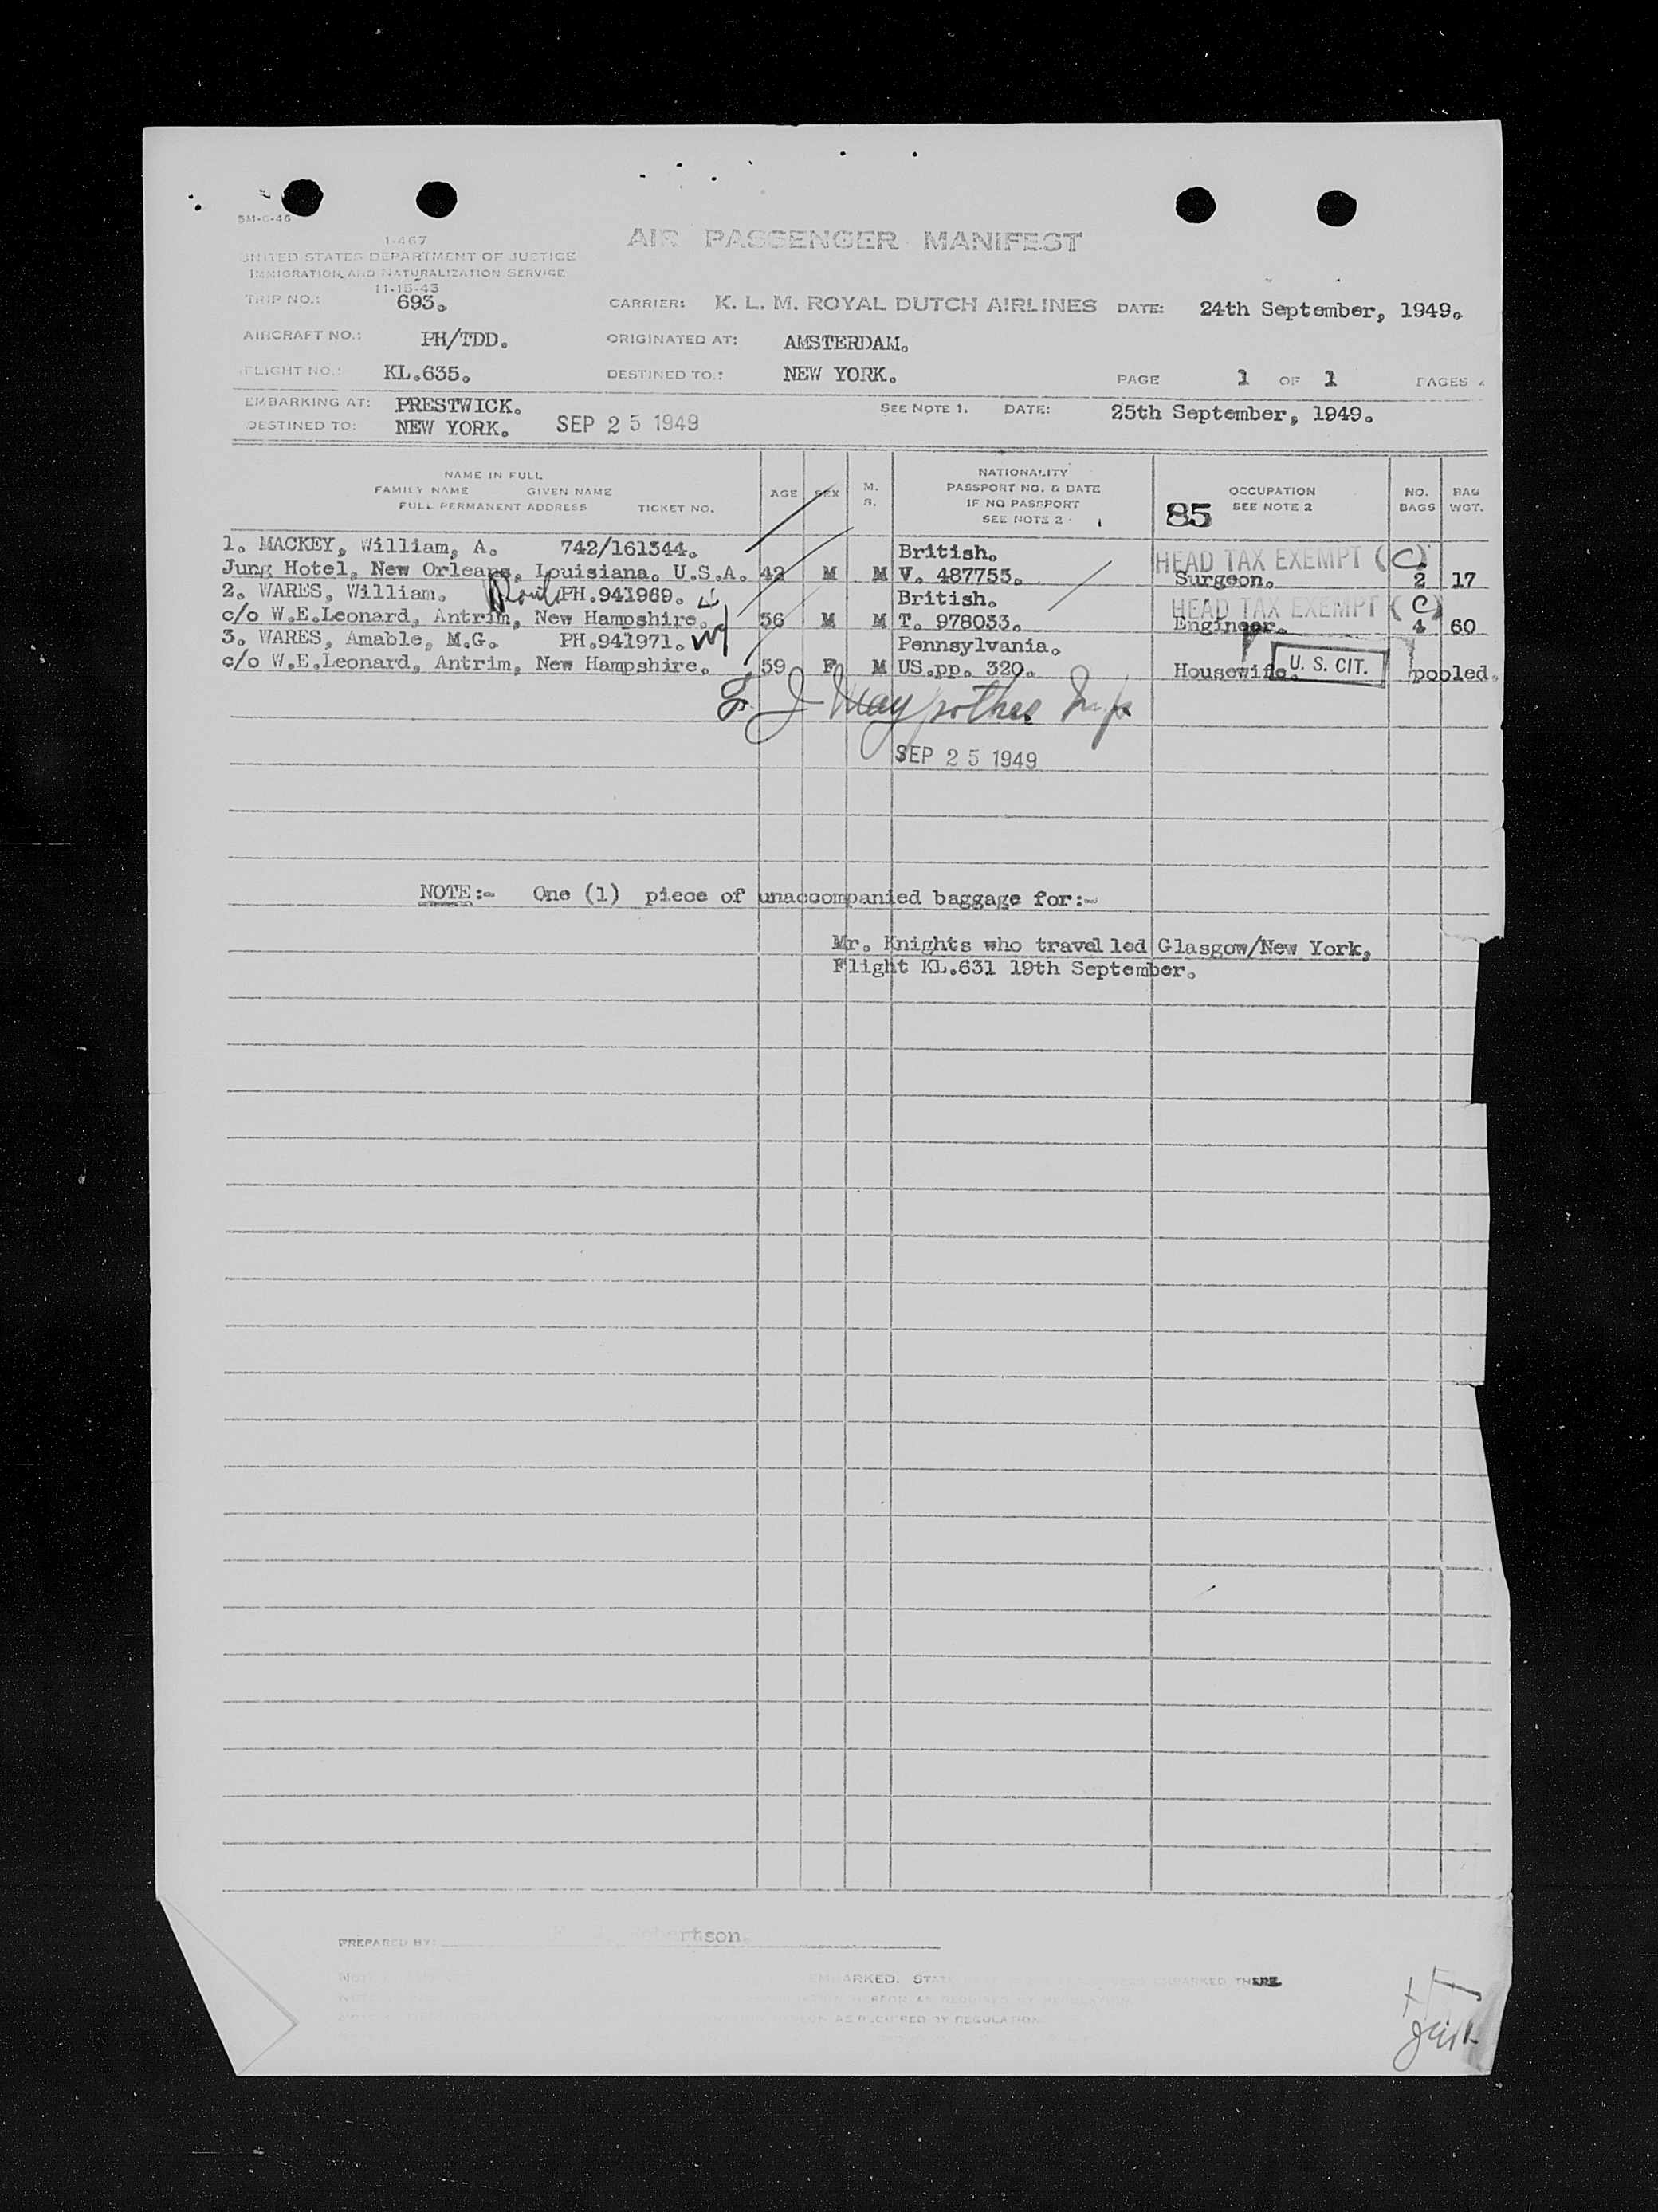 5M-6-46
1-467
UNITED STATES DEPARTMENT OF JUSTICE
IMMIGRATION AND NATURALIZATION SERVICE
11-15-43
AIR PASSENGER MANIFEST
TRIP NO.: 693. CARRIER: K. L. M. ROYAL DUTCH AIRLINES DATE: 24th September, 1949.
AIRCRAFT NO.: PH/TDD. ORIGINATED AT: AMSTERDAM.
FLIGHT NO.: KL.635. DESTINED TO.: NEW YORK. PAGE 1 OF 1 PAGES
EMBARKING AT: PRESTWICK. SEE NOTE 1. DATE: 25th September, 1949.
DESTINED TO: NEW YORK. SEP 25 1949
NAME IN FULL
FAMILY NAME GIVEN NAME
FULL PERMANENT ADDRESS TICKET NO.
AGE SEX M. S.
NATIONALITY
PASSPORT NO. & DATE
IF NO PASSPORT
SEE NOTE 2
85 OCCUPATION
SEE NOTE 2
NO. BAGS
BAG WGT.
1. MACKEY, William, A. 742/161344. British. HEAD TAX EXEMPT (C)
Jung Hotel, New Orleans, Louisiana. U.S.A. 42 M M V. 487755. Surgeon. 2 17
2. WARES, William. PH.941969. British. HEAD TAX EXEMPT (C)
c/o W.E.Leonard, Antrim, New Hampshire. 56 M M T. 978033. Engineer. 4 60
3. WARES, Amable, M.G. PH.941971. Pennsylvania.
c/o W.E.Leonard, Antrim, New Hampshire. 59 F M US.pp. 320. Housewife. U. S. CIT. pooled.
SEP 25 1949
NOTE:- One (1) piece of unaccompanied baggage for:-
Mr. Knights who travelled Glasgow/New York,
Flight KL.631 19th September.
PREPARED BY:
EMBARKED THERE.
AS REQUIRED BY REGULATION